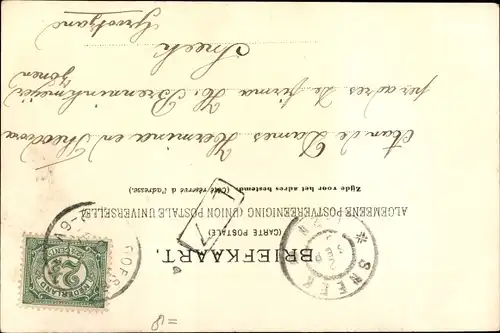 BRIEFKAART.
(CARTE POSTALE)
ALGEMEENE POSTVEREENIGING (UNION POSTALE UNIVERSELLE)
Zijde voor het adres bestemd. (Côté réservé à l'adresse.)
Aan de Dames Hermina en Theodora
per adres de firma H. Brenninkmeijer
Zonen
Sneek
Grootzand
NEDERLAND
2½
GOES
SNEEK
1
=18